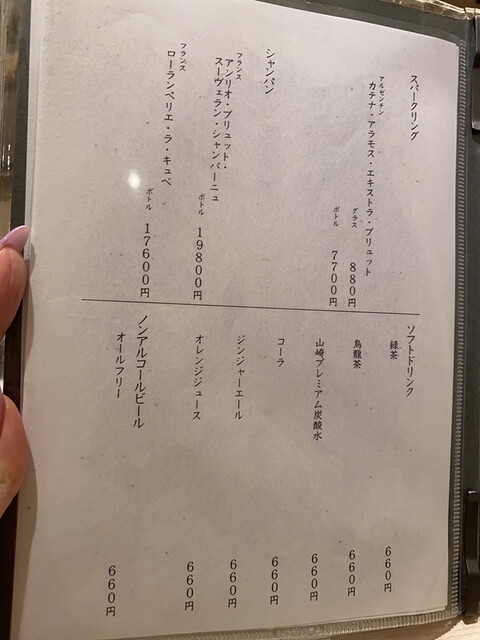 スパークリング
アルゼンチン
カテナ・アラモス・エキストラ・ブリュット
グラス 880円
ボトル 7700円
シャンパン
フランス
アンリオ・ブリュット・
スーヴェラン・シャンパーニュ
ボトル 19800円
フランス
ローランペリエ・ラ・キュベ
ボトル 17600円
ソフトドリンク
緑茶 660円
烏龍茶 660円
山崎プレミアム炭酸水 660円
コーラ 660円
ジンジャーエール 660円
オレンジジュース 660円
ノンアルコールビール
オールフリー 660円